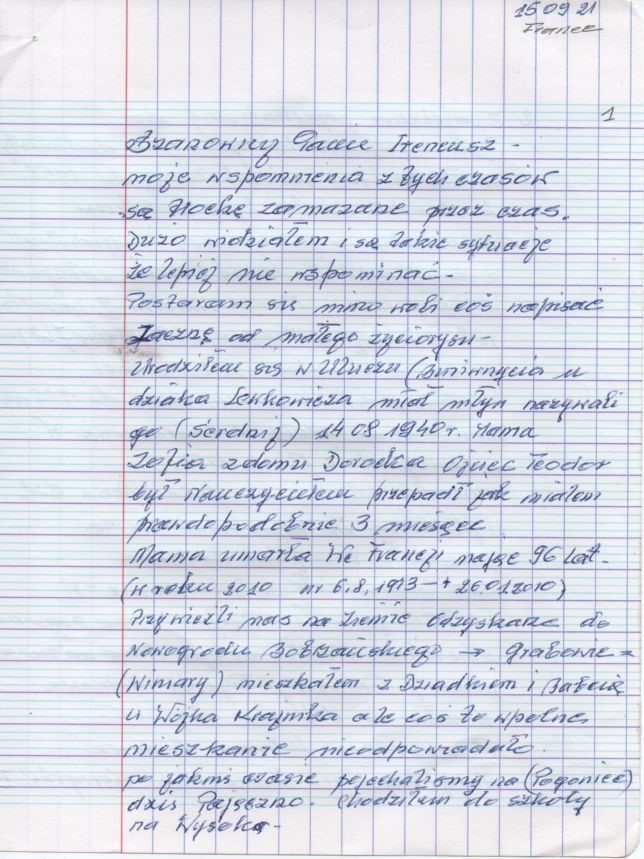 15 09 21
France
1
Szanowny Panie Ireneusz -
moje wspomnienia z tych czasów
są trochę zamazane przez czas.
Dużo widziałem i są takie sytuacje
że lepiej nie wspominać -
Postaram się mimo woli coś napisać
Zaczną od małego życiorysu -
Urodziłem się w Uluczu ( u
dziadka Lewkowicza miał młyn nazywali
go (Serdzij) 14 08 1940 r. Mama
Zofia z domu Dorocka Ojciec Teodor
był Nauczycielem przepadł jak miałem
prawdopodobnie 3 miesiące
Mama umarła We Francji mając 96 Lat -
(w roku 2010 ur 6.8.1913 - + 26.01.2010)
Przywieźli nas na Ziemie Odzyskane do
Nowogrodu Bobrzańskiego → Grabowie =
(Winiary) mieszkałem z Dziadkiem i Babcią
u Wójka Krajnika ale coś to wpólne
mieszkanie nieodpowiadało.
po jakimś czasie pojechaliśmy na (Pogonice)
dziś Pajęczno. Chodziłem do szkoły
na Wysoką -